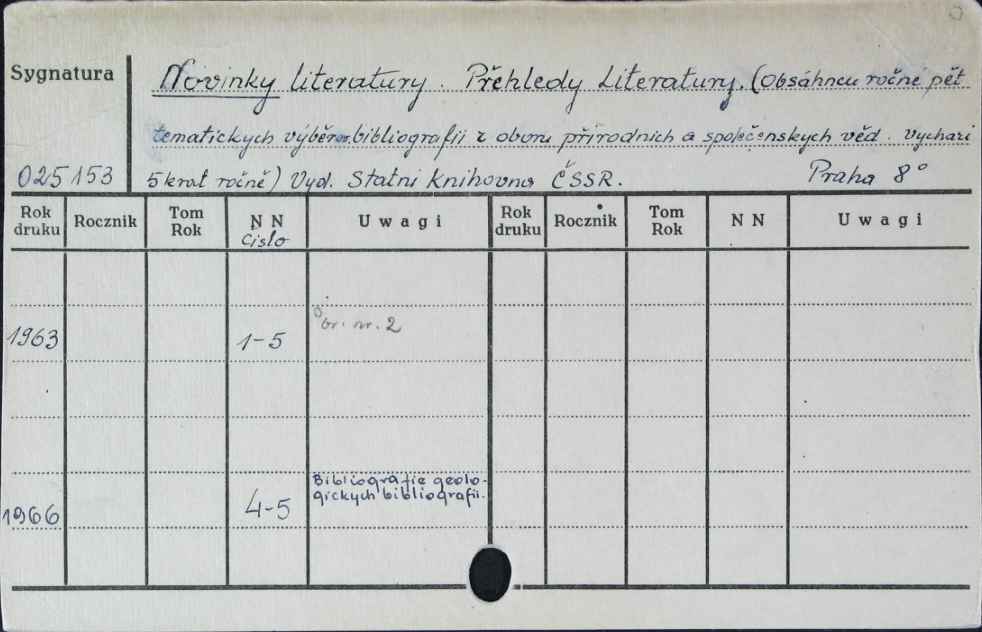 Sygnatura
Novinky literatury. Přehledy Literatury. (Obsáhnou ročně pět
tematickych výběrov. bibliografii z oboru přírodnich a společenskych věd. Vycházi
025153 5 krat ročně) Vyd. Statni Knihovna ČSSR. Praha 8°
Rok druku Rocznik Tom Rok NN Uwagi Rok druku Rocznik Tom Rok NN Uwagi
čislo
1963 1-5 br. nr. 2
1966 4-5 Bibliografie geolo-
gickych bibliografii.